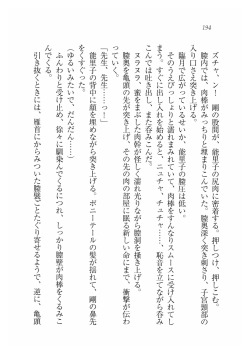 194
ズチャ、ン――！　剛の股間が、能里子の尻肉に密着する。押しつけ、押しこむ。
膣内では、肉棒がみっちりと埋まりこんでいる。膣奥深く突き刺さり、子宮頸部の
入り口さえ突き上げる。
臨月で広がっているせいか、能里子の膣圧は低い。
そのうえびっしょりと濡れまみれていて、肉棒をすんなりスムーズに受け入れてし
まう。すぐに出し入れを始めると、ニュチャ、チュチャ……、恥音を立てながら呑み
こんでは吐き出し、また呑みこんだ。
ヌラヌラ、蜜をまぶした肉幹が怪しく濡れ光りながら膣洞を掻き上げる。
膣奥を亀頭の先が突き上げ、その先の肉の部屋に眠る新しい命にまで、衝撃が伝わ
っていく。
「先生、先生……っ！」
能里子の背中に顔を埋めながら突き上げる。ポニーテールの髪が揺れて、剛の鼻先
をくすぐった。
（ゆるいみたいで、だんだん……）
ふんわりと受け止め、徐々に馴染んでくるにつれ、しっかり膣襞が肉棒をくるみこ
んでくる。
引き抜くときには、雁首にからみついた膣襞ごとたぐり寄せるようで、逆に、亀頭